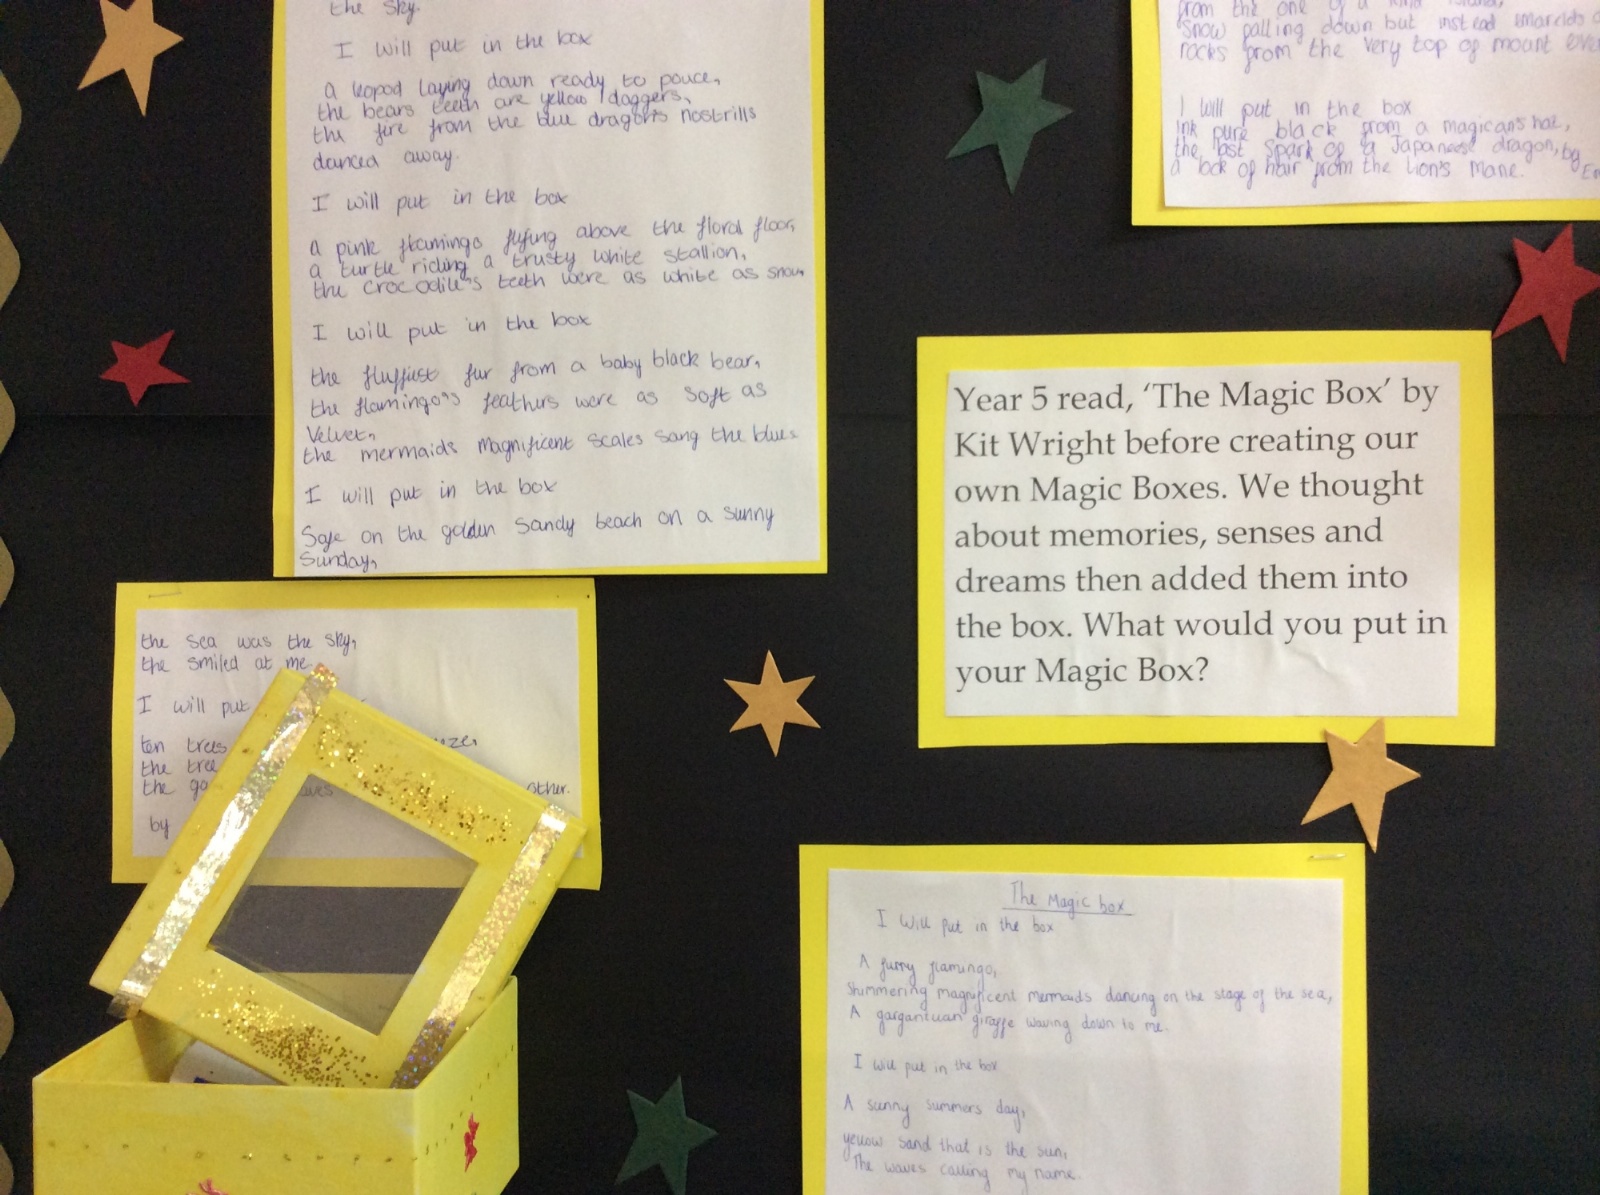 the sky.
I will put in the box
a lepod laying down ready to pouce,
the bears teeth are yellow daggers,
the fire from the blue dragons nostrills
danced away.
I will put in the box
a pink flamingo flying above the floral floor,
a turtle riding a trusty white stallion,
the crocodile's teeth were as white as snow,
I will put in the box
the fluffiest fur from a baby black bear,
the flamingo's feathirs were as soft as
Velvet,
the mermaids magnificent scales sang the blues
I will put in the box
Safe on the golden sandy beach on a sunny
Sunday,
the sea was the sky,
the smiled at me
I will put
ten trees
the tree
the go
other.
by
from the one of a kind island,
Snow falling down but instead
rocks from the very top of mount
I will put in the box
Ink pure black from a magican's hat,
the last spark of a Japaneese dragon,
a lock of hair from the Lion's mane.
by
Year 5 read, ‘The Magic Box’ by
Kit Wright before creating our
own Magic Boxes. We thought
about memories, senses and
dreams then added them into
the box. What would you put in
your Magic Box?
The Magic box
I Will put in the box
A furry flamingo,
Shimmering magnificent mermaids dancing on the stage of the sea,
A gargantuan giraffe waving down to me.
I will put in the box
A sunny summers day,
yellow sand that is the sun,
The waves calling my name.